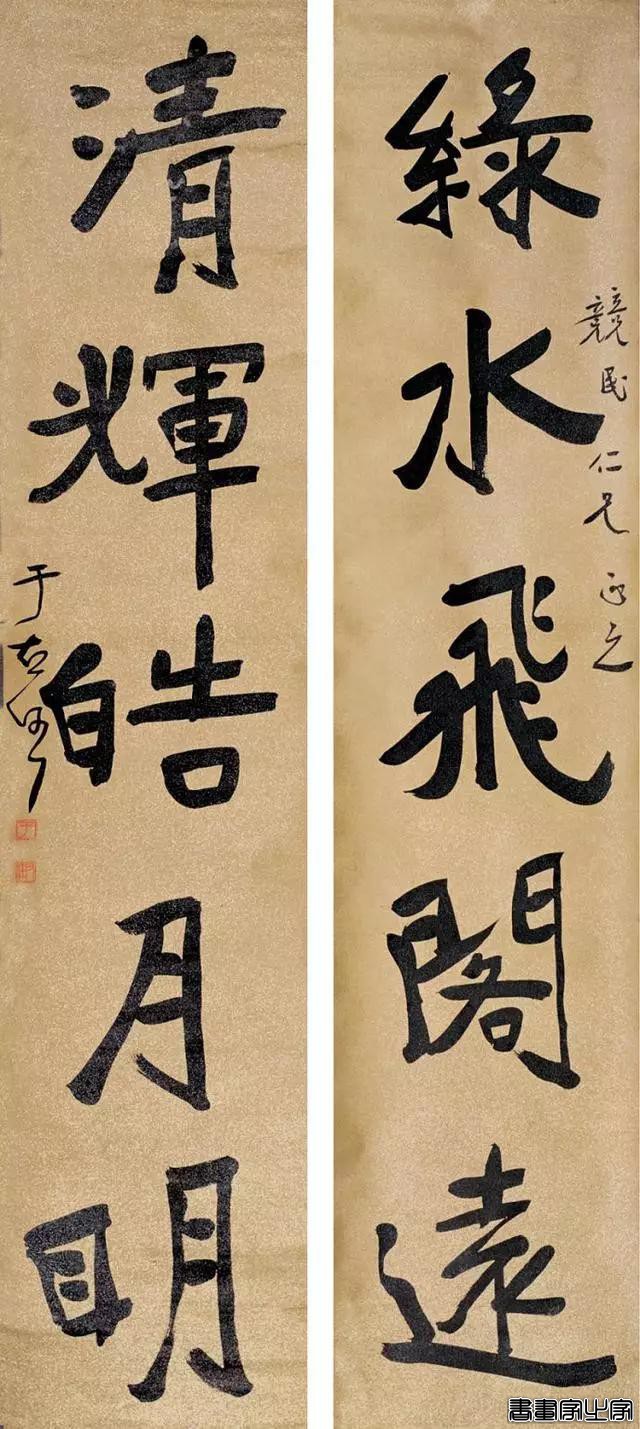 綠水飛閣遠
競民仁兄正之
清輝皓月明
于右任
書畫家必字